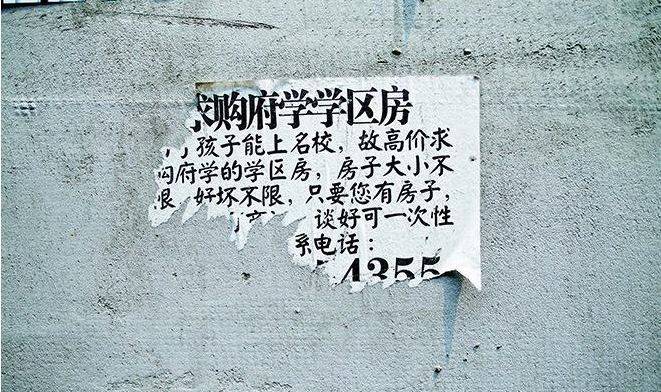 求购府学学区房
孩子能上名校，故高价求
购府学的学区房，房子大小不
限，好坏不限，只要您有房子，
谈好可一次性
系电话：
4355